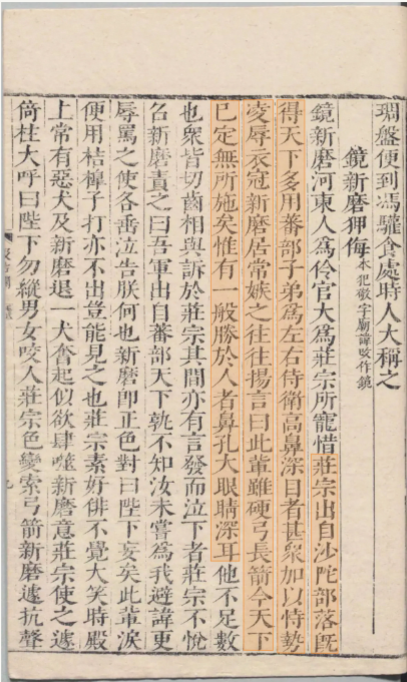 瑂盤便到馮驩食處時人大稱之
鏡新磨狎侮本犯敬字廟諱改作鏡
鏡新磨河東人為伶官大為莊宗所寵惜莊宗出自沙陀部落旣
得天下多用蕃部子弟為左右侍衛高鼻深目者甚衆加以恃勢
凌辱衣冠新磨居常嫉之往往揚言曰此輩雖硬弓長箭今天下
已定無所施矣惟有一般勝於人者鼻孔大眼睛深耳他不足數
也衆皆切齒相與訴於莊宗其間亦有言發而泣下者莊宗不悅
召新磨責之曰吾軍出自蕃部天下孰不知汝未嘗為我避諱更
辱罵之使各垂泣告朕何也新磨卽正色對曰陛下妄矣此輩淚
便用桔槹子打亦不出豈能見之也莊宗素好俳不覺大笑時殿
上常有惡犬及新磨退一犬奮起似欲肆噬新磨意莊宗使之遽
倚柱大呼曰陛下勿縱男女咬人莊宗色變索弓箭新磨遽抗聲
九